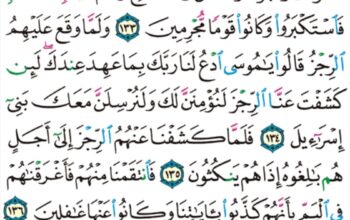 فَٱسۡتَكۡبَرُواْ وَكَانُواْ قَوۡمٗا مُّجۡرِمِينَ ١٣٣ وَلَمَّا وَقَعَ عَلَيۡهِمُ
ٱلرِّجۡزُ قَالُواْ يَٰمُوسَى ٱدۡعُ لَنَا رَبَّكَ بِمَا عَهِدَ عِندَكَۖ لَئِن
كَشَفۡتَ عَنَّا ٱلرِّجۡزَ لَنُؤۡمِنَنَّ لَكَ وَلَنُرۡسِلَنَّ مَعَكَ بَنِيٓ
إِسۡرَٰٓءِيلَ ١٣٤ فَلَمَّا كَشَفۡنَا عَنۡهُمُ ٱلرِّجۡزَ إِلَىٰٓ أَجَلٍ
هُم بَٰلِغُوهُ إِذَا هُمۡ يَنكُثُونَ ١٣٥ فَٱنتَقَمۡنَا مِنۡهُمۡ فَأَغۡرَقۡنَٰهُمۡ
فِي ٱلۡيَمِّ بِأَنَّهُمۡ كَذَّبُواْ بِـَٔايَٰتِنَا وَكَانُواْ عَنۡهَا غَٰفِلِينَ ١٣٦